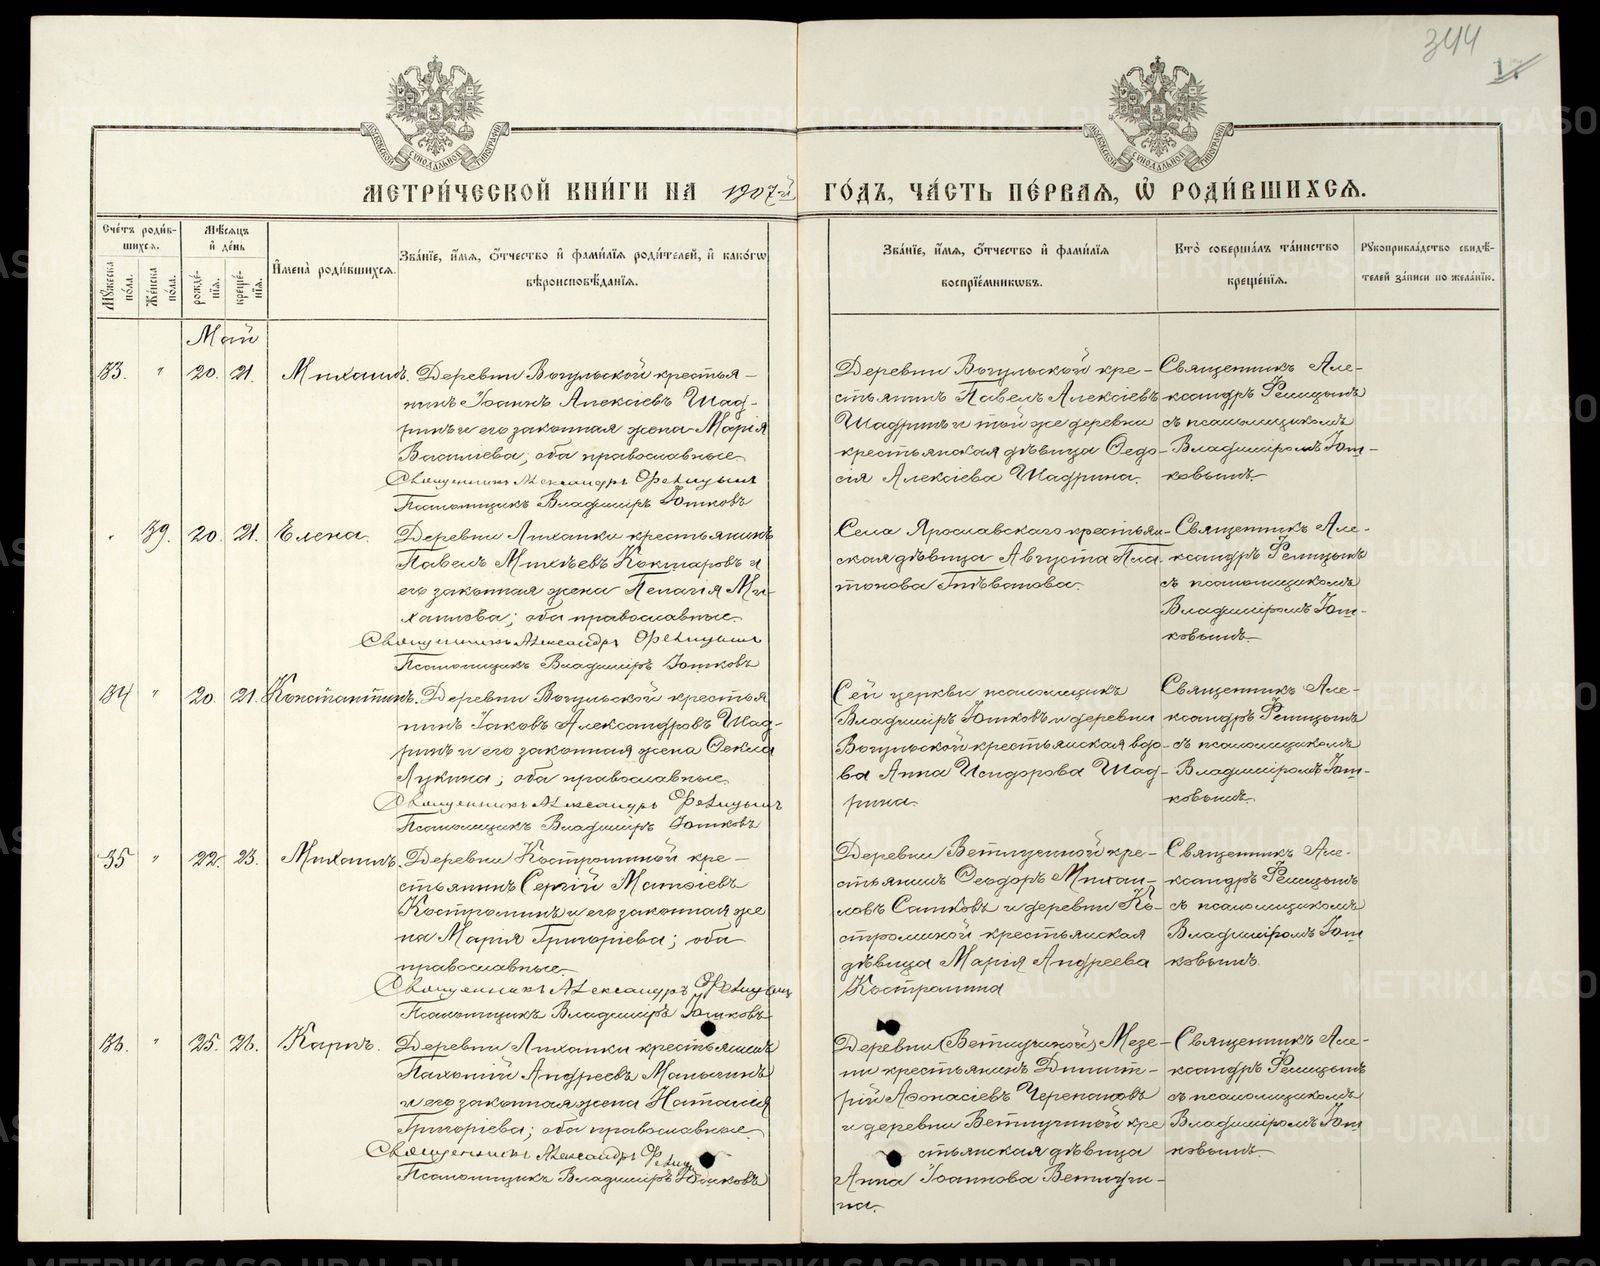 344
1.
МОСКОВСКОЙ СѴНОДАЛЬНОЙ ТИПОГРАФІИ
МОСКОВСКОЙ СѴНОДАЛЬНОЙ ТИПОГРАФІИ
МЕТРИ́ЧЕСКОЙ КНИ́ГИ НА 1907-й ГО́ДЪ, ЧА́СТЬ ПЕ́РВАЯ, Ѡ҆ РОДИ́ВШИХСЯ.
Сче́тъ роди́в-
шихся.
Мꙋ́жеска по́ла.
Же́нска по́ла.
Мѣ́сяцъ
и҆ де́нь
рожде́-
нїя.
креще́-
нїя.
И҆мена̀ роди́вшихся.
Зва́нїе, и҆́мя, ѻ҆́тчество и҆ фами́лїя роди́телей, и҆ како́гѡ
вѣроисповѣ́данїя.
Зва́нїе, и҆́мя, ѻ҆́тчество и҆ фами́лїя
воспрїе́мникѡвъ.
Кто̀ соверша́лъ та́инство
креще́нїя.
Рꙋкоприкла́дство свидѣ́-
телей за́писи по жела́нїю.
Май
33. " 20. 21. Михаилъ.
Деревни Вогульской крестья-
нинъ Іоаннъ Алексіевъ Шад-
ринъ и его законная жена Марія
Василіева; оба православные.
Священникъ Александръ Фелицынъ
Псаломщикъ Владиміръ Ютковъ
Деревни Вогульской кре-
стьянинъ Павелъ Алексіевъ
Шадринъ и той же деревни
крестьянская дѣвица Ѳедо-
сія Алексіева Шадрина.
Священникъ Але-
ксандръ Фелицынъ
съ псаломщикомъ
Владиміромъ Ют-
ковымъ.
" 39. 20. 21. Елена.
Деревни Ляханки крестьянинъ
Павелъ Михѣевъ Кокшаровъ и
его законная жена Пелагія Ми-
хаилова; оба православные.
Священникъ Александръ Фелицынъ
Псаломщикъ Владиміръ Ютковъ
Села Ярославскаго крестьян-
ская дѣвица Августа Пла-
тонова Гилѣванова.
Священникъ Але-
ксандръ Фелицынъ
съ псаломщикомъ
Владиміромъ Ют-
ковымъ.
34 " 20. 21. Константинъ.
Деревни Вогульской крестья
нинъ Іаковъ Александровъ Шад-
ринъ и его законная жена Ѳекла
Лукина; оба православные.
Священникъ Александръ Фелицынъ
Псаломщикъ Владиміръ Ютковъ
Сей церкви псаломщикъ
Владиміръ Ютковъ и деревни
Вогульской крестьянская вдо-
ва Анна Исидорова Шад-
рина.
Священникъ Але-
ксандръ Фелицынъ
съ псаломщикомъ
Владиміромъ Ют-
ковымъ.
35 " 22. 23. Михаилъ.
Деревни Костроминой кре-
стьянинъ Сергій Матѳіевъ
Костроминъ и его законная же
на Марія Григоріева; оба
православные.
Священникъ Александръ Фелицынъ
Псаломщикъ Владиміръ Ютковъ
Деревни Ветлугиной кре-
стьянинъ Ѳеодоръ Михаи-
ловъ Сатковъ и деревни Ко-
строминой крестьянская
дѣвица Марія Андреева
Костромина
Священникъ Але-
ксандръ Фелицынъ
съ псаломщикомъ
Владиміромъ Ют
ковымъ.
36. " 25. 26. Карпъ.
Деревни Ляханки крестьянинъ
Пахомій Андреевъ Манькинъ
и его законная жена Наталія
Григоріева; оба православные.
Священникъ Александръ Фелиц
Псаломщикъ Владиміръ Ютковъ
Деревни (Ветлугиной) Мезе-
ни крестьянинъ Димит-
рій Аѳонасіевъ Черепановъ
и деревни Ветлугиной кре
стьянская дѣвица
Анна Іоаннова Ветлуги-
на.
Священникъ Але-
ксандръ Фелицынъ
съ псаломщикомъ
Владиміромъ Ют
ковымъ.
METRIKI.GASO-URAL.RU